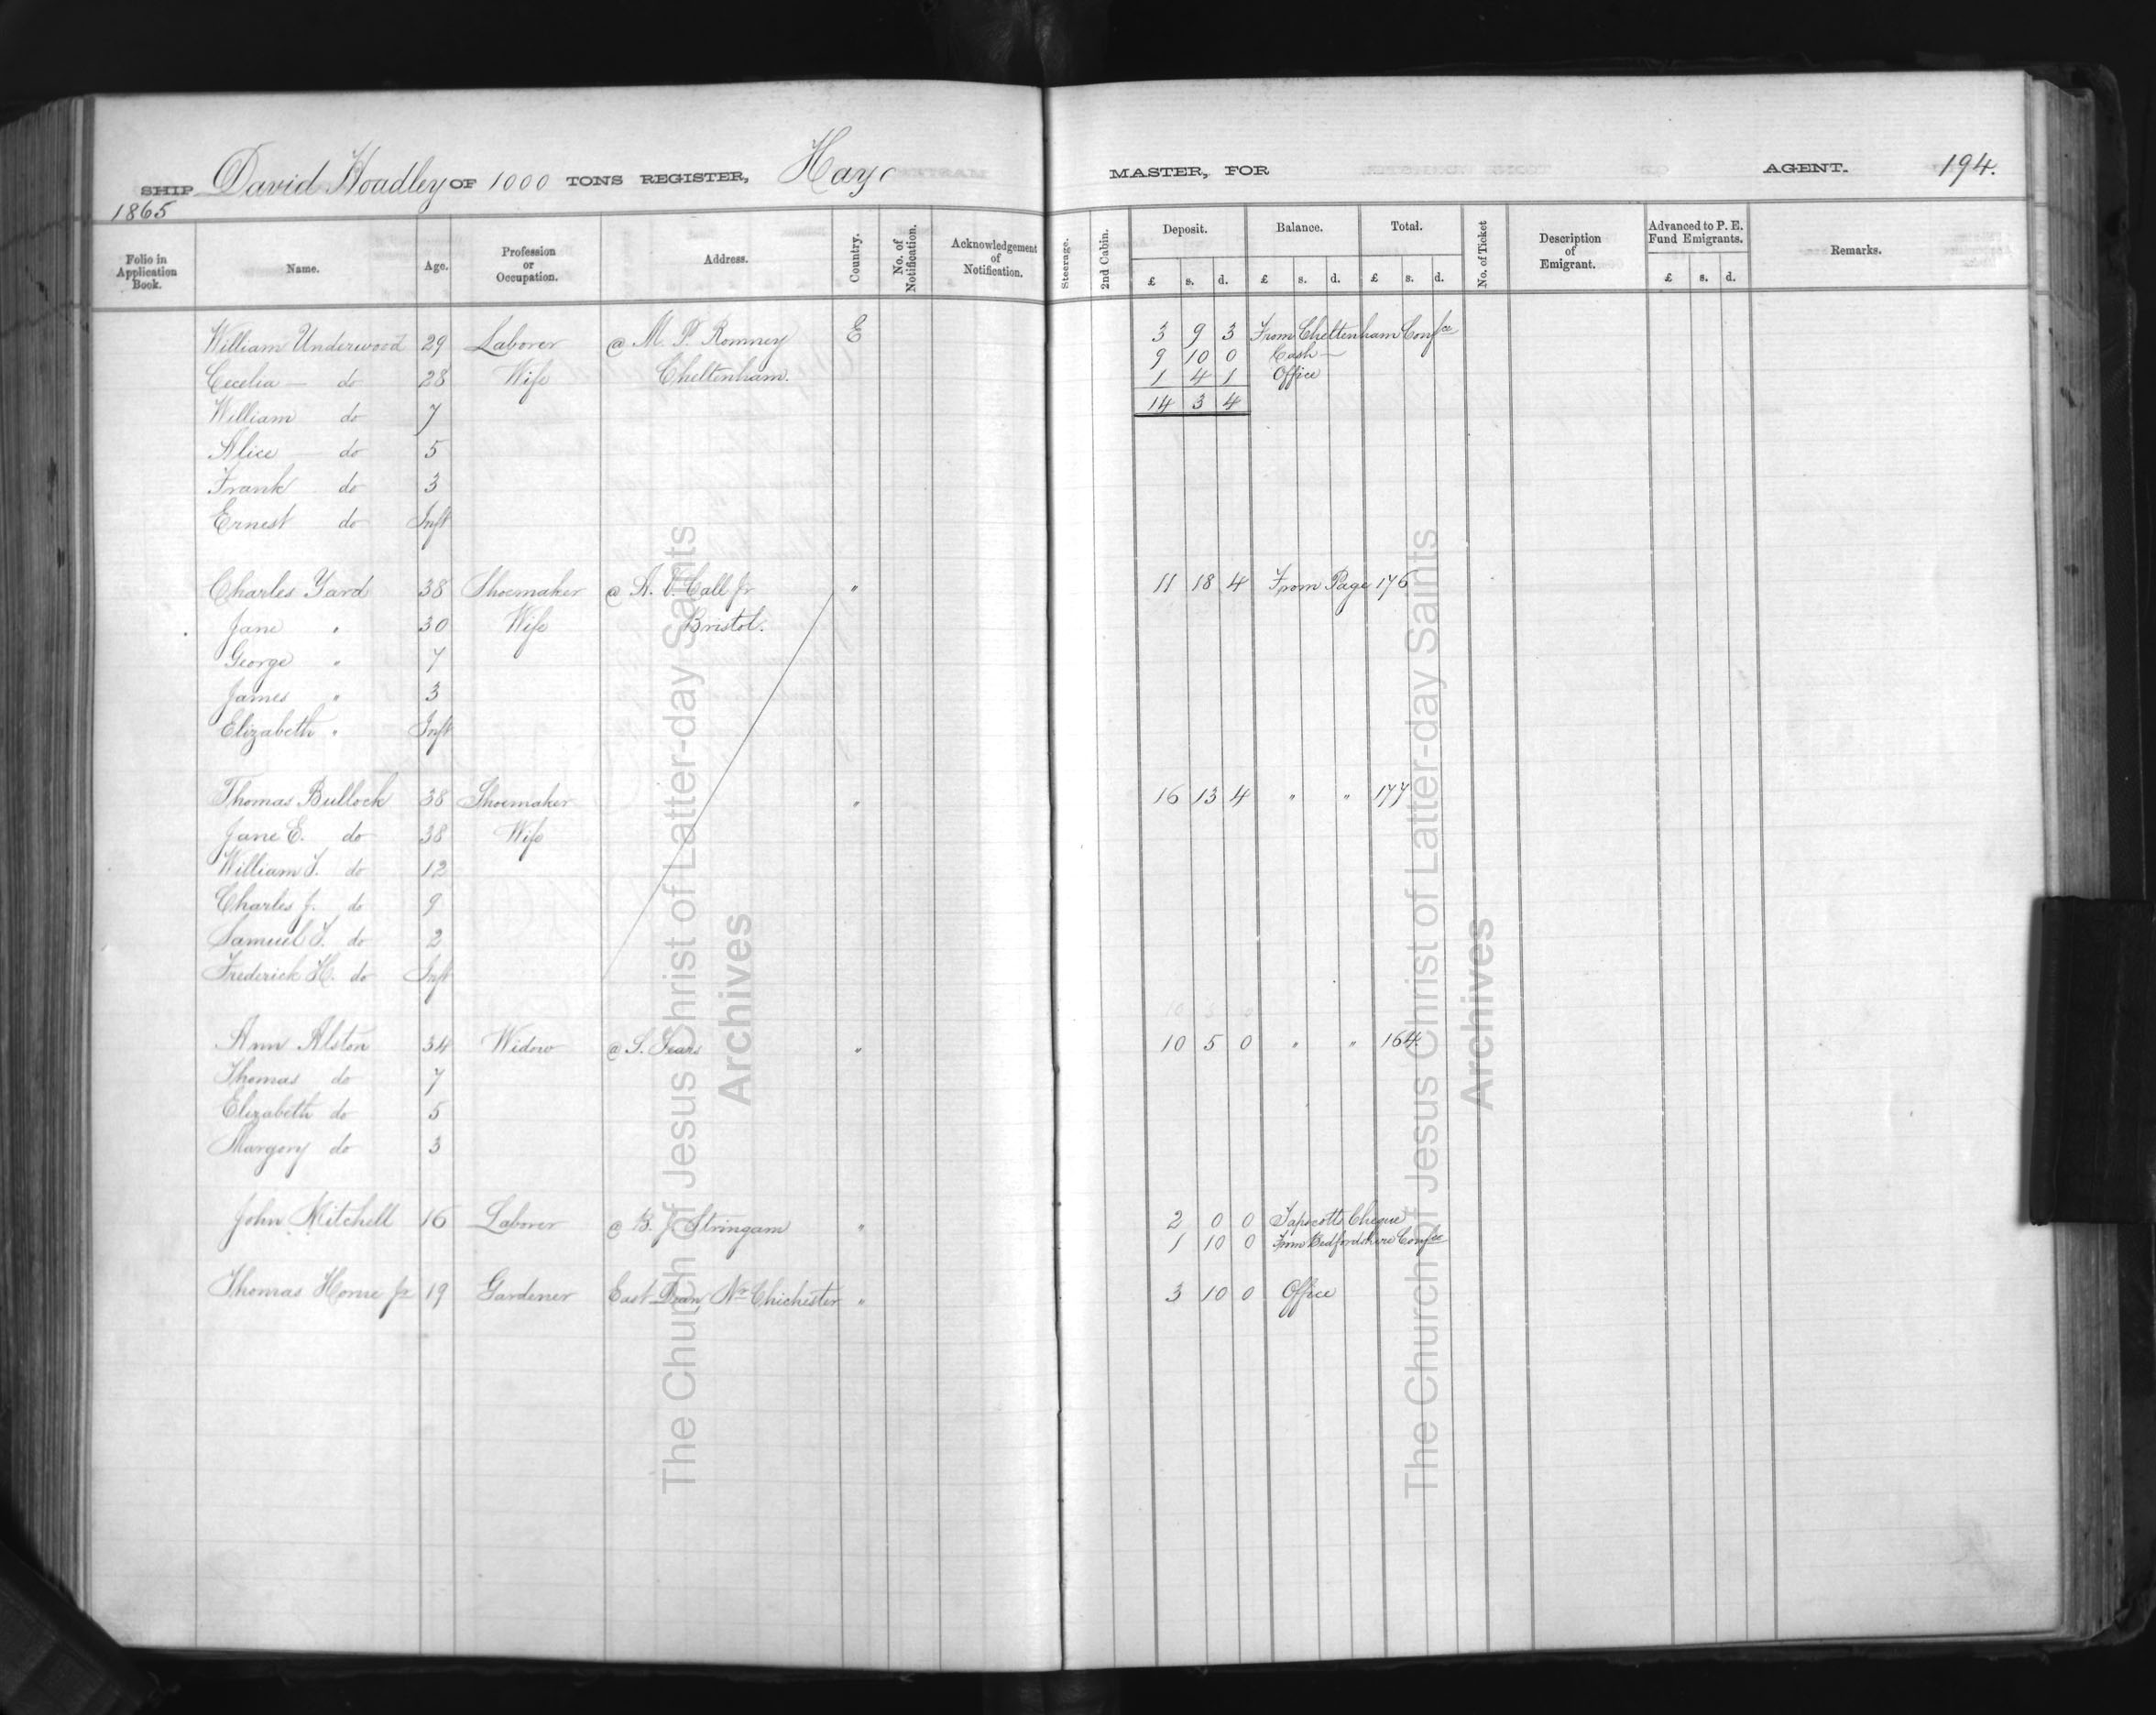 SHIP David Hoadley OF 1000 TONS REGISTER, Hay MASTER, FOR AGENT. 194.
1865
Folio in Application Book. Name. Age. Profession or Occupation. Address. Country. No. of Notification. Acknowledgement of Notification. Steerage. 2nd Cabin. Deposit. Balance. Total. No. of Ticket Description of Emigrant. Advanced to P. E. Fund Emigrants. Remarks.
£ s. d. £ s. d. £ s. d. £ s. d.
William Underwood 29 Laborer @ M. P. Romney E 3 9 3 From Cheltenham Confce
9 10 0 Cash —
Cecelia — do 28 Wife Cheltenham. 1 4 1 Office
William do 7 14 3 4
Alice — do 5
Frank do 3
Ernest do Inft
Charles Yard 38 Shoemaker @ A. V. Call Jr " 11 18 4 From Page 176
Jane " 30 Wife Bristol.
George " 7
James " 3
Elizabeth " Inft
Thomas Bullock 38 Shoemaker " 16 13 4 " " 177
Jane E. do 38 Wife
William T. do 12
Charles J. do 9
Samuel T. do 2
Frederick H. do Inft
Ann Alston 34 Widow @ S. Sears " 10 5 0 " " 164.
Thomas do 7
Elizabeth do 5
Margory do 3
John Mitchell 16 Laborer @ B. J. Stringam " 2 0 0 Tapscotts Cheque
1 10 0 From Bedfordshire Confce
Thomas Horne Jr 19 Gardener East Dean, Nr Chichester " 3 10 0 Office
The Church of Jesus Christ of Latter-day Saints
Archives
The Church of Jesus Christ of Latter-day Saints
Archives